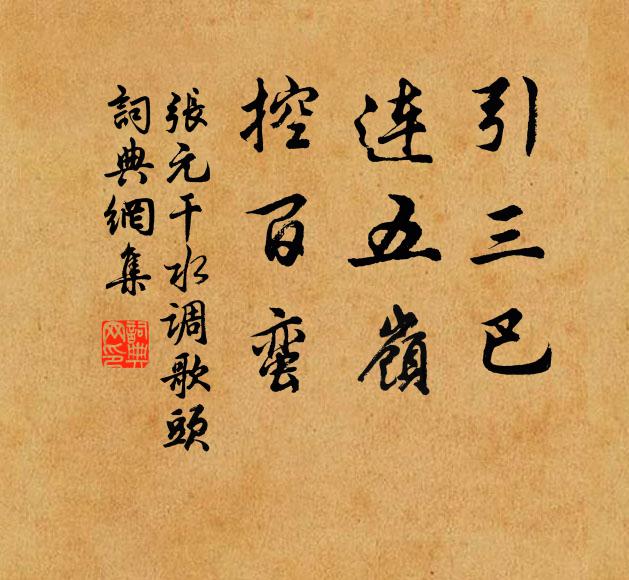 引三巴
连五嶺
控百蛮
張元干水调歌頭
詞典網集
詞典网印